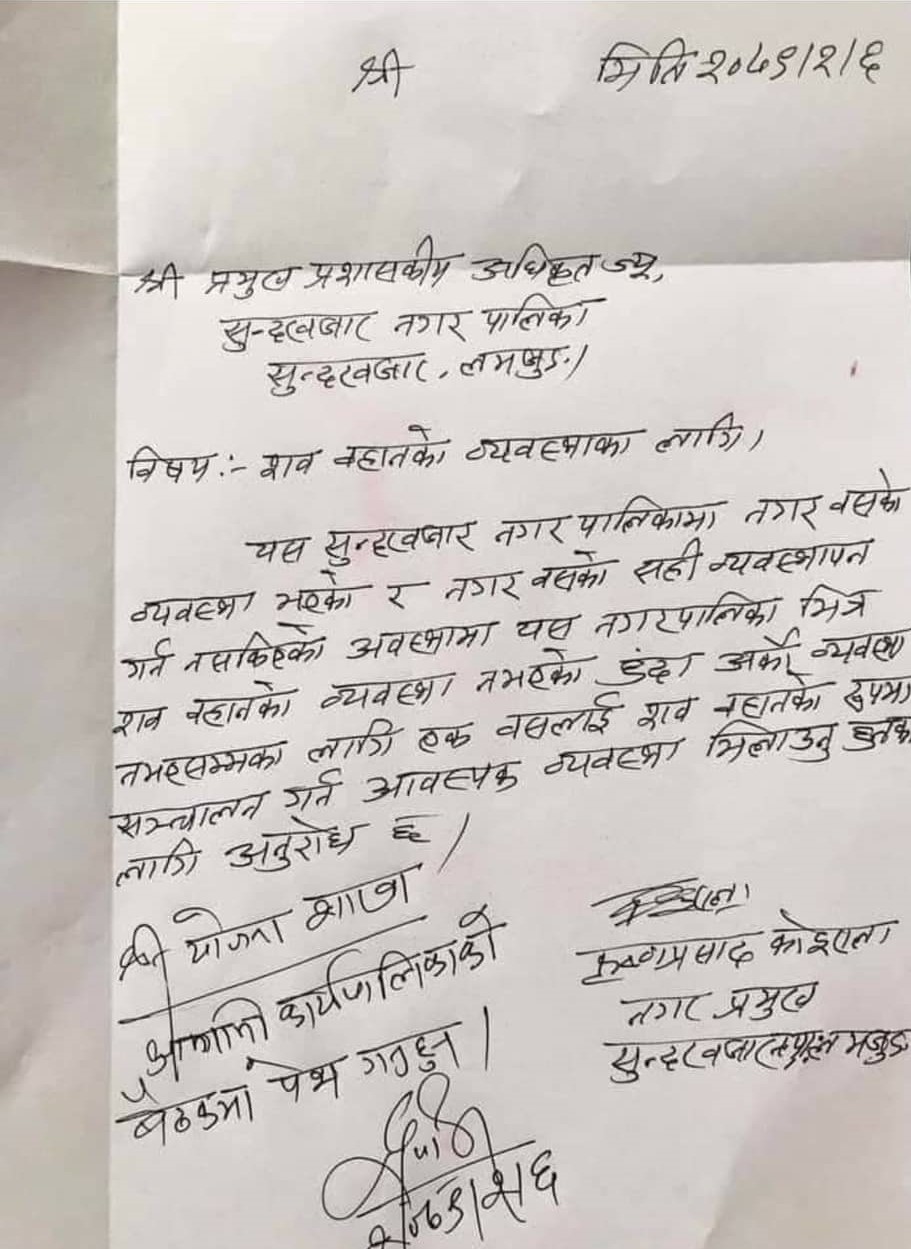 श्री
मिति २०७९/२/६
श्री प्रमुख प्रशासकीय अधिकृत ज्यू,
सुन्दरवजार नगर पालिका
सुन्दरवजार, लमजुङ।
विषय :- शव वहानको व्यवस्थाका लागि।
यस सुन्दरवजार नगर पालिकामा नगर वसको
व्यवस्था भएको र नगर वसको सही व्यवस्थापन
गर्न नसकिएको अवस्थामा यस नगरपालिका भित्र
शव वहानको व्यवस्था नभएको हुंदा अर्को व्यवस्था
नभएसम्मका लागि एक वसलाई शव वहानको रुपमा
सञ्चालन गर्न आवस्यक व्यवस्था मिलाउनु हुनका
लागि अनुरोध छ।
श्री योजना शाखा
आगामी कार्यपालिकाको
बैठकमा पेश गर्नुहुन।
कृष्णप्रसाद कोइराला
नगर प्रमुख
सुन्दरवजार
२०७९/२/६